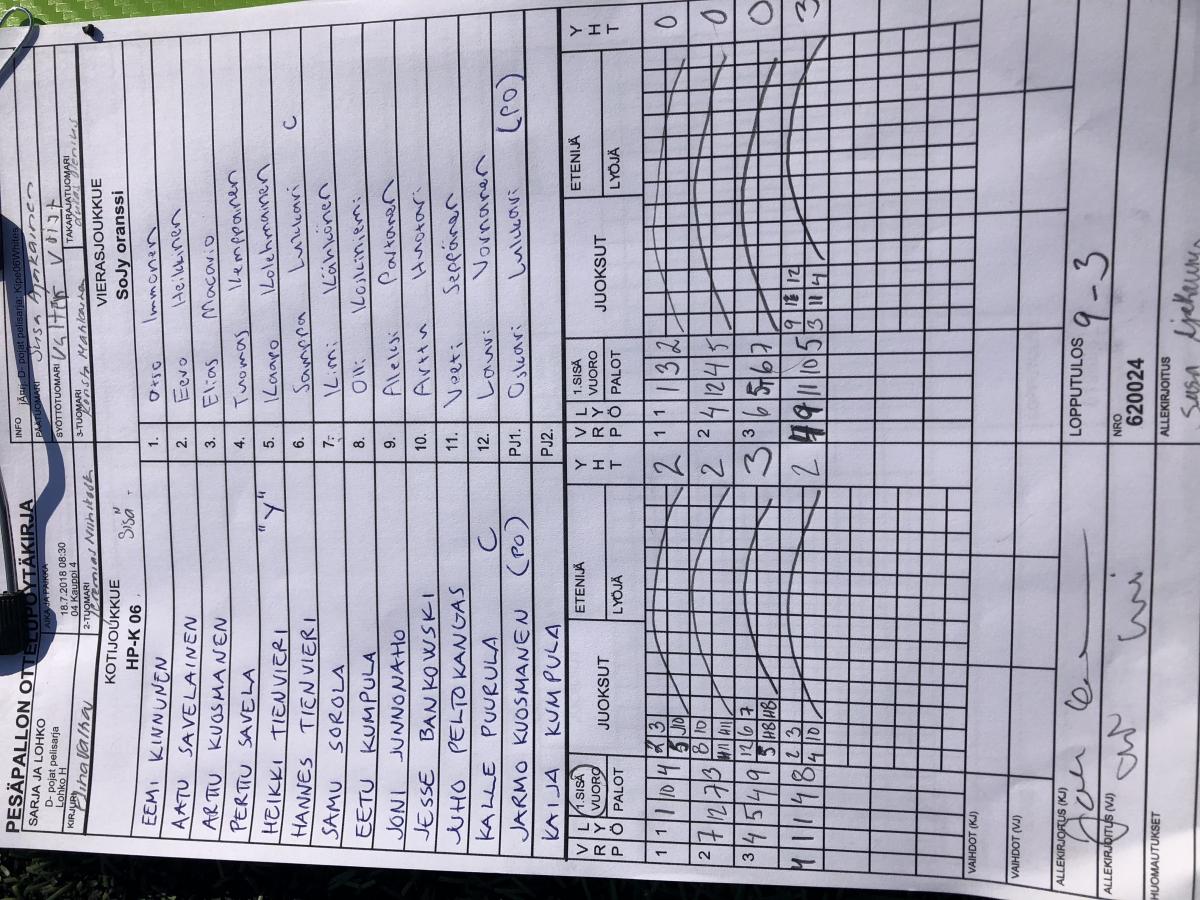 PESÄPALLON OTTELUPÖYTÄKIRJA
SARJA JA LOHKO
D- pojat pelisarja
Lohko H
AIKA JA PAIKKA
18.7.2018 08:30
04 Kauppi 4
INFO
D- pojat pelisarja:
PÄÄTUOMARI
SYÖTTÖTUOMARI
KIRJURI
2-TUOMARI
3-TUOMARI
TAKARAJATUOMARI
KOTIJOUKKUE
HP-K 06
"SISÄ"
VIERASJOUKKUE
SoJy oranssi
EEMI KINNUNEN 1. Otso Immonen
AATU SAVELAINEN 2. Eero Heikkinen
ARTTU KUOSMANEN 3. Elias Macario
PERTTU SAVELA 4. Tuomas Kemppainen
HEIKKI TIENVIERI "Y" 5. Kaapo Kolehmainen
HANNES TIENVIERI 6. Samppa Lukkari C
SAMU SOROLA 7. Kimi Kähkönen
EETU KUMPULA 8. Olli Koskiniemi
JONI JUNNONAHO 9. Aleksi Partanen
JESSE BANKOWSKI 10. Arttu Huotari
JUHO PELTOKANGAS 11. Veeti Seppänen
KALLE PUURULA C 12. Lauri Vornanen
JARMO KUOSMANEN (PO) PJ1. Oskari Lukkari (PO)
KAIJA KUMPULA PJ2.
VRP LYÖ 1.SISÄ VUORO PALOT JUOKSUT ETENIJÄ LYÖJÄ YHT VRP LYÖ 1.SISÄ VUORO PALOT JUOKSUT ETENIJÄ LYÖJÄ YHT
1 1 1 10 4 2 3 2 1 1 1 3 2 0
5 J10
2 7 12 7 3 8 10 2 2 4 12 4 5 0
H11 H11
3 4 5 4 9 12 6 7 3 3 6 5 6 7 0
5 HB HB
4 1 1 4 8 2 3 2 4 9 11 10 5 9 12 12 3
4 10 3 11 4
VAIHDOT (KJ)
VAIHDOT (VJ)
ALLEKIRJOITUS (KJ)
LOPPUTULOS 9-3
ALLEKIRJOITUS (VJ)
NRO
620024
HUOMAUTUKSET
ALLEKIRJOITUS